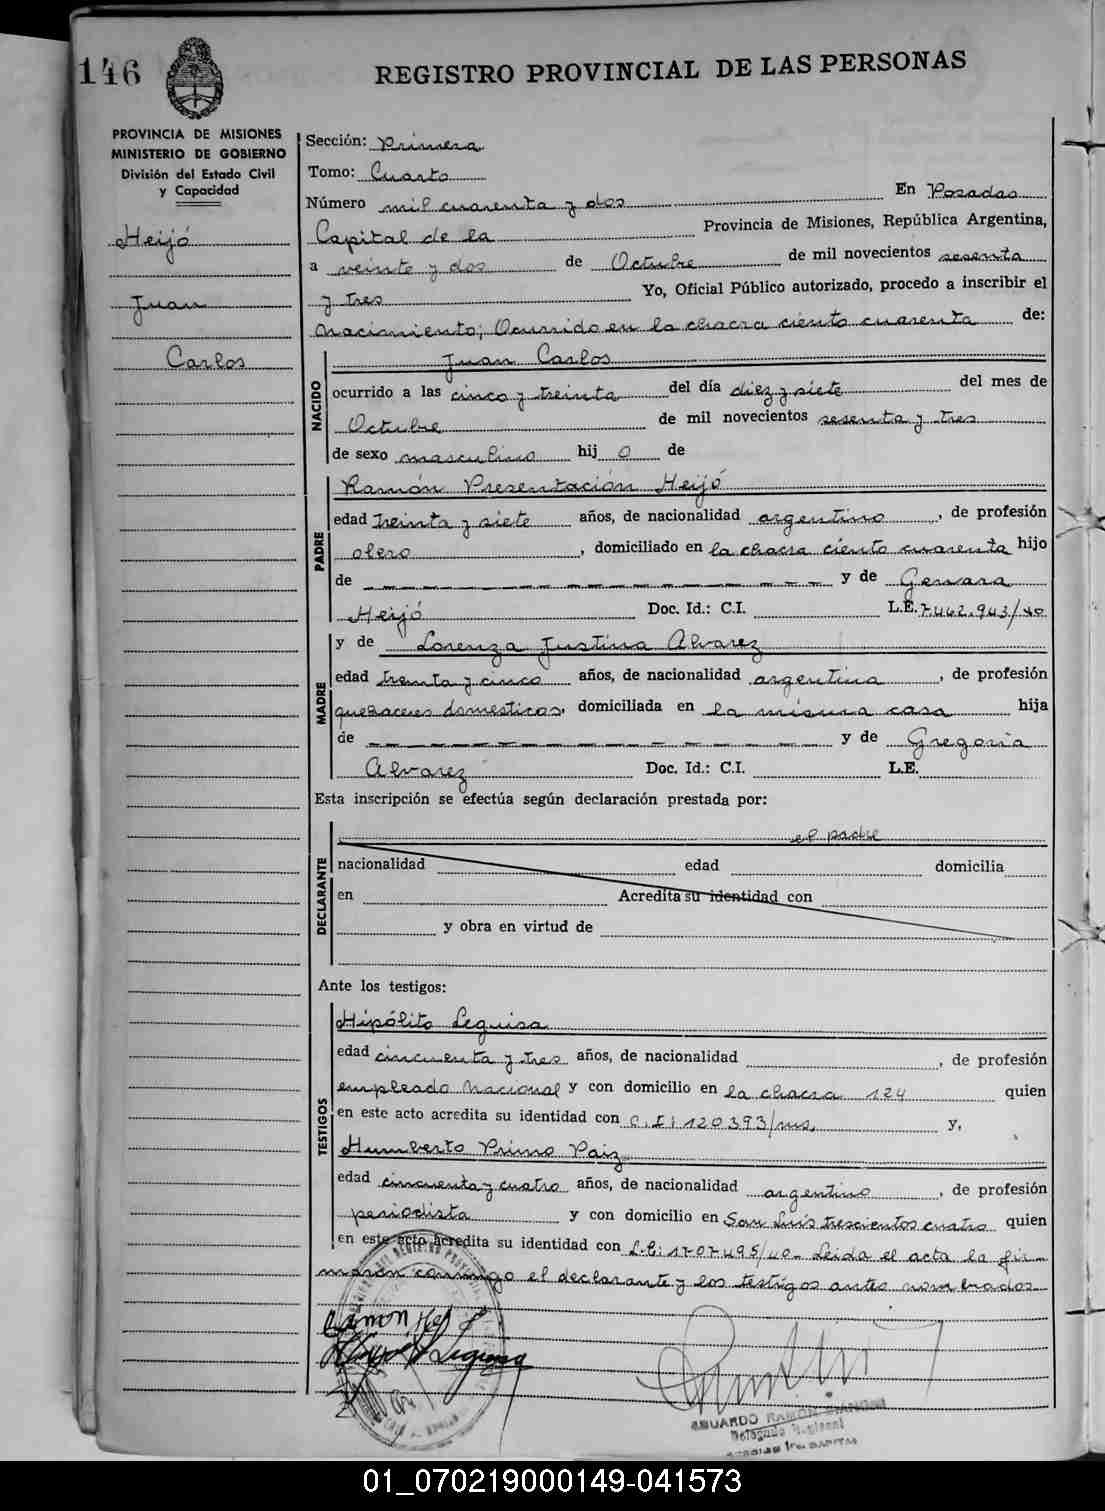 146
REGISTRO PROVINCIAL DE LAS PERSONAS
PROVINCIA DE MISIONES
MINISTERIO DE GOBIERNO
División del Estado Civil
y Capacidad
Heijó
Juan
Carlos
Sección: Primera
Tomo: Cuarto
Número mil cuarenta y dos En Posadas
Capital de la Provincia de Misiones, República Argentina,
a veinte y dos de Octubre de mil novecientos sesenta
y tres Yo, Oficial Público autorizado, procedo a inscribir el
Nacimiento; Ocurrido en la chacra ciento cuarenta de:
NACIDO
Juan Carlos
ocurrido a las cinco y treinta del día diez y siete del mes de
Octubre de mil novecientos sesenta y tres
de sexo masculino hij o de
PADRE
Ramón Presentación Heijó
edad treinta y siete años, de nacionalidad argentino, de profesión
olero, domiciliado en la chacra ciento cuarenta hijo
de y de Genara
Heijó Doc. Id.: C.I. L.E. 7.462.943/
MADRE
y de Lorenza Justina Alvarez
edad treinta y cinco años, de nacionalidad argentina, de profesión
quehaceres domesticos, domiciliada en la misma casa hija
de y de Gregoria
Alvarez Doc. Id.: C.I. L.E.
Esta inscripción se efectúa según declaración prestada por:
DECLARANTE
el padre
nacionalidad edad domicilia
en Acredita su identidad con
y obra en virtud de
Ante los testigos:
TESTIGOS
Hipólito Leguisa
edad cincuenta y tres años, de nacionalidad , de profesión
empleado Nacional y con domicilio en la chacra 124 quien
en este acto acredita su identidad con C.I: 120393/ms, y,
Humberto Primo Paiz
edad cincuenta y cuatro años, de nacionalidad argentino, de profesión
periodista y con domicilio en San Luis trescientos cuatro quien
en este acto acredita su identidad con Leida el acta la fir-
maron conmigo el declarante y los testigos antes nombrados
Ramon Hei
EDUARDO RAMON
Delegado
01_070219000149-041573